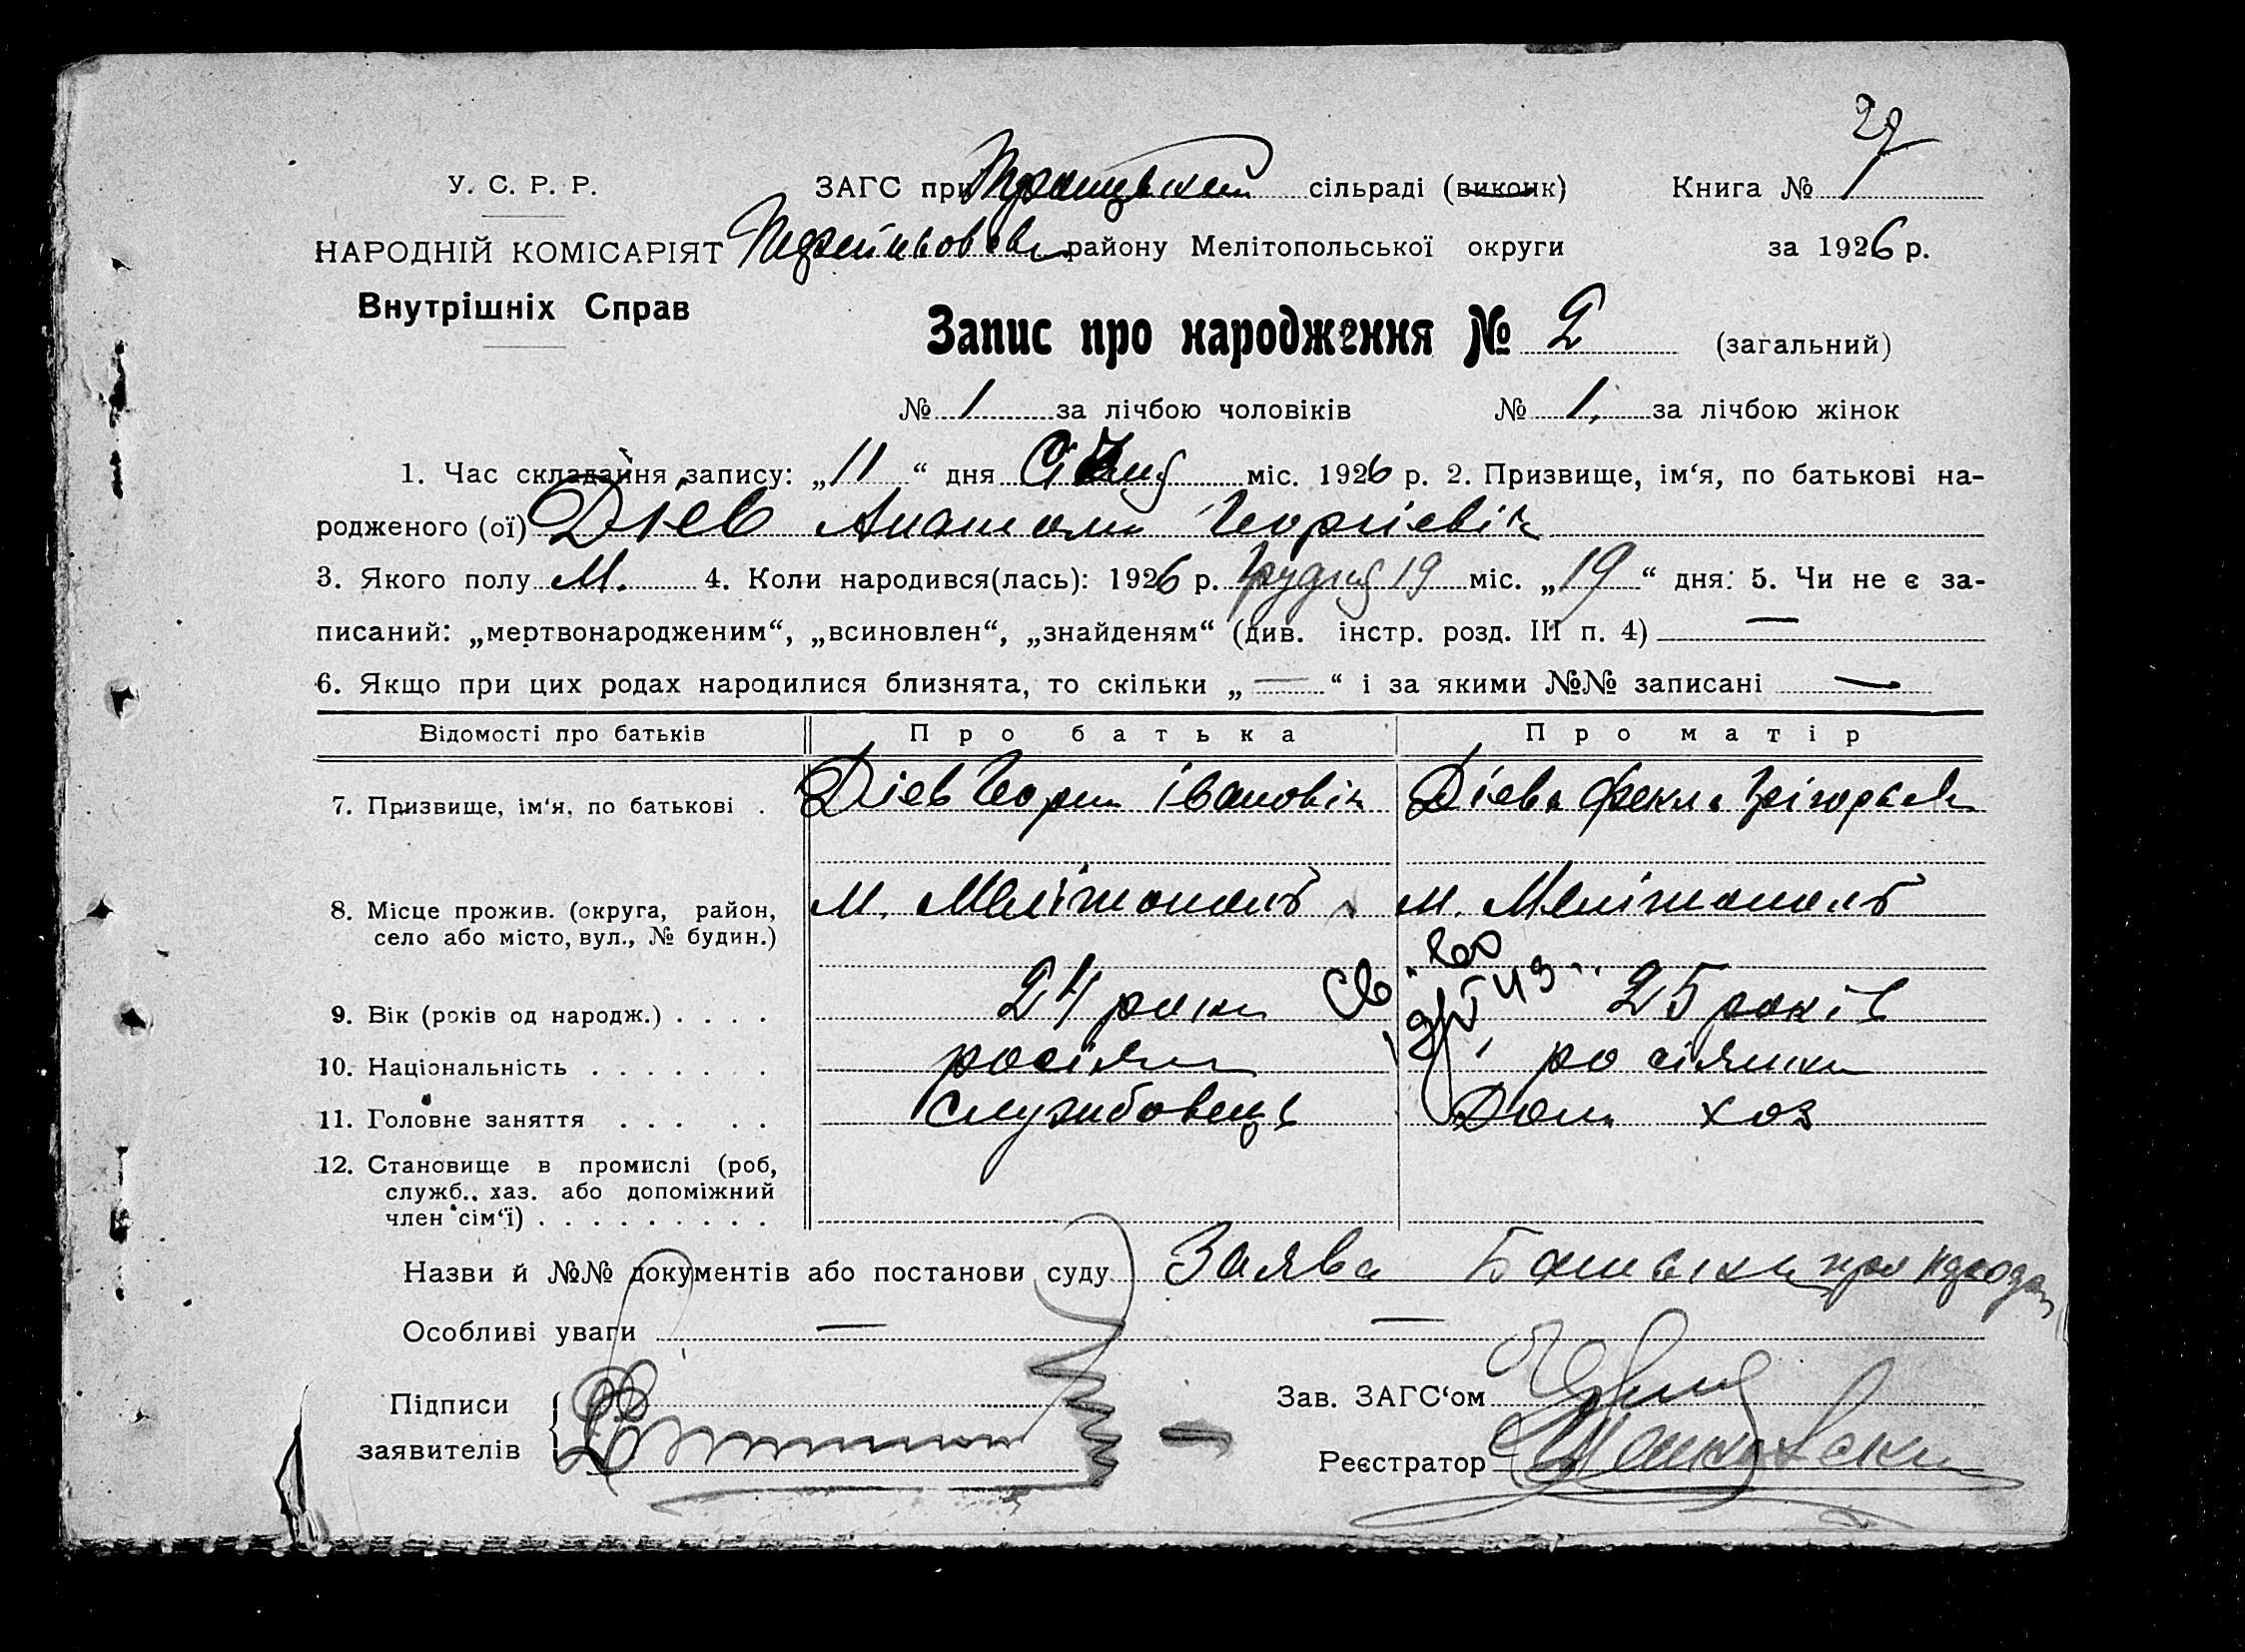 27
У. С. Р. Р. ЗАГС при сільраді (виконк) Книга № 1
НАРОДНІЙ КОМІСАРІЯТ району Мелітопольської округи за 1926 р.
Внутрішніх Справ
Запис про народження № 2 (загальний)
№ 1 за лічбою чоловіків № 1, за лічбою жінок
1. Час складання запису: „11“ дня Січня міс. 1926 р. 2. Призвище, ім‘я, по батькові на-
родженого (ої) Дієв Анатоли Георгієвіч
3. Якого полу М. 4. Коли народився(лась): 1926 р. Грудня 19 міс. „19“ дня: 5. Чи не є за-
писаний: „мертвонародженим“, „всиновлен“, „знайденям“ (див. інстр. розд. III п. 4) —
6. Якщо при цих родах народилися близнята, то скільки „—“ і за якими №№ записані —
Відомості про батьків Про батька Про матір
7. Призвище, ім‘я, по батькові . Дієв Георги Івановіч Дієва Фекла
8. Місце прожив. (округа, район, М. Мелітополь М. Мелітополь
село або місто, вул., № будин.)
9. Вік (років од народж.) . . . . 24 роки 25 років
10. Національність . . . . . . . росіян росіянка
11. Головне заняття . . . . . Службовець Дом. хоз
12. Становище в промислі (роб,
служб., хаз. або допоміжний
член сім‘ї) . . . . . . . . .
Назви й №№ документів або постанови суду Заява Батька про
Особливі уваги — —
Підписи Зав. ЗАГС‘ом
заявителів Реєстратор